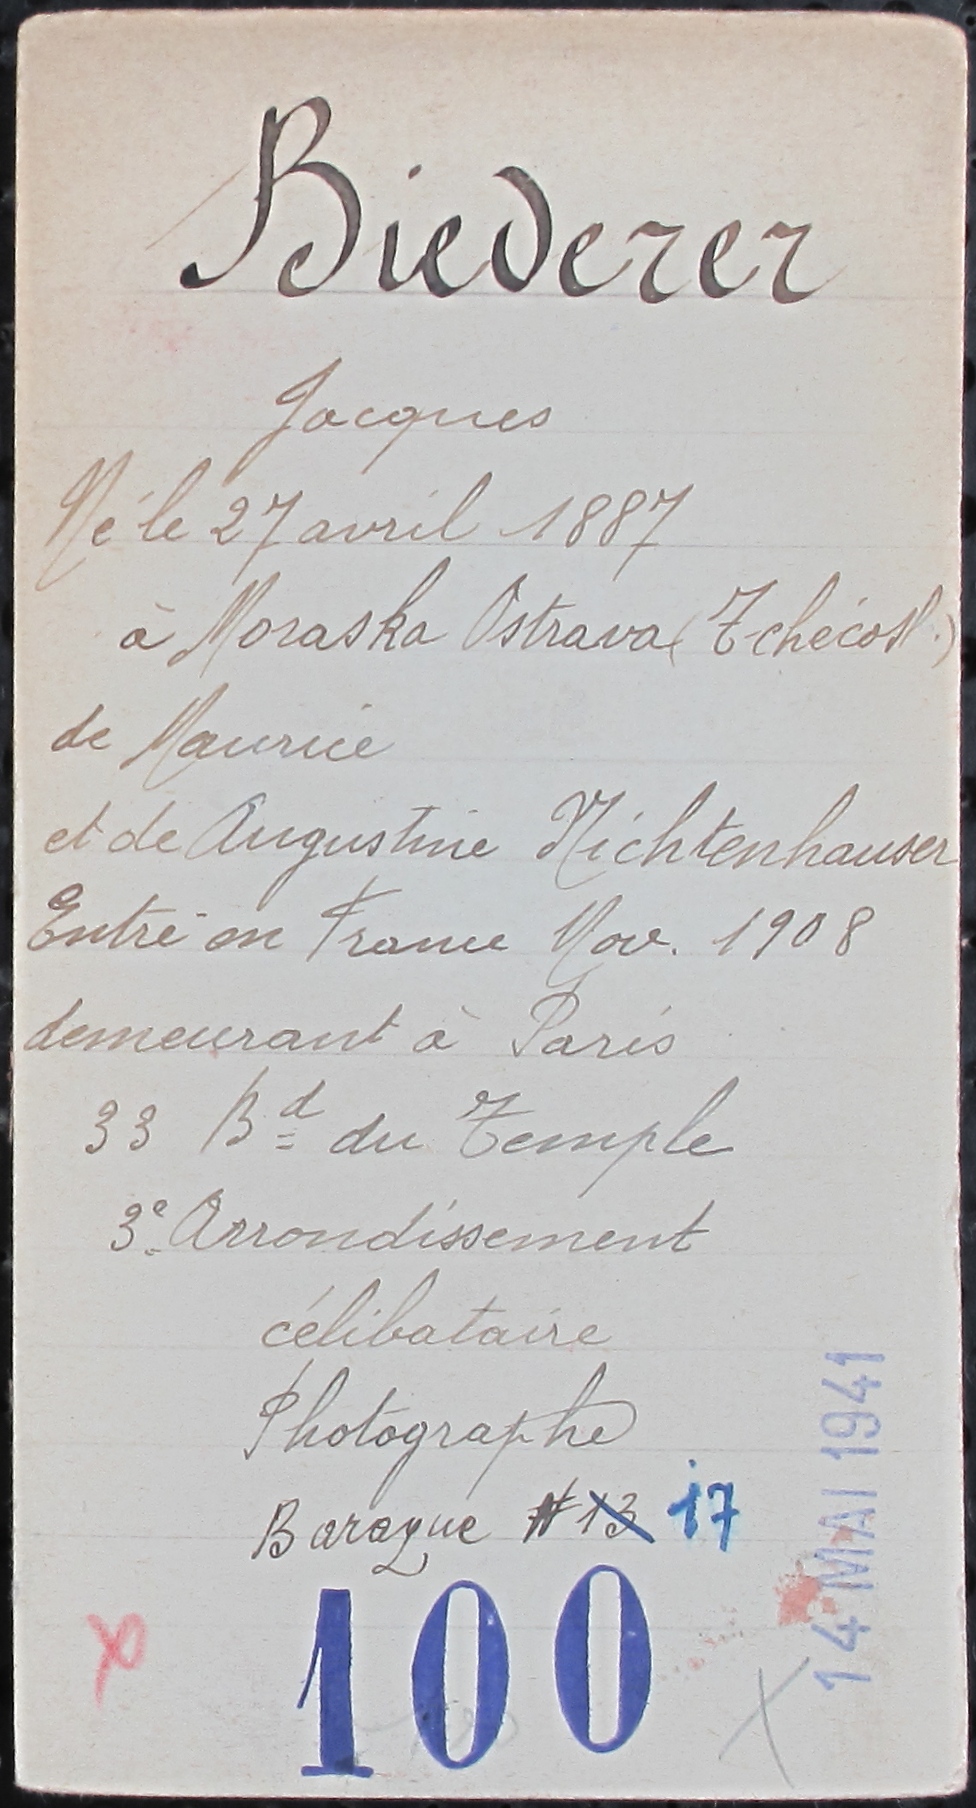 Biederer
Jacques
Né le 27 avril 1887
à Moraska Ostrava (Tchécosl.)
de Maurice
et de Augustine Nichtenhauser
Entré en France Nov. 1908
demeurant à Paris
33 Bd du Temple
3e Arrondissement
célibataire
Photographe
Baraque # 13 17
100
14 MAI 1941